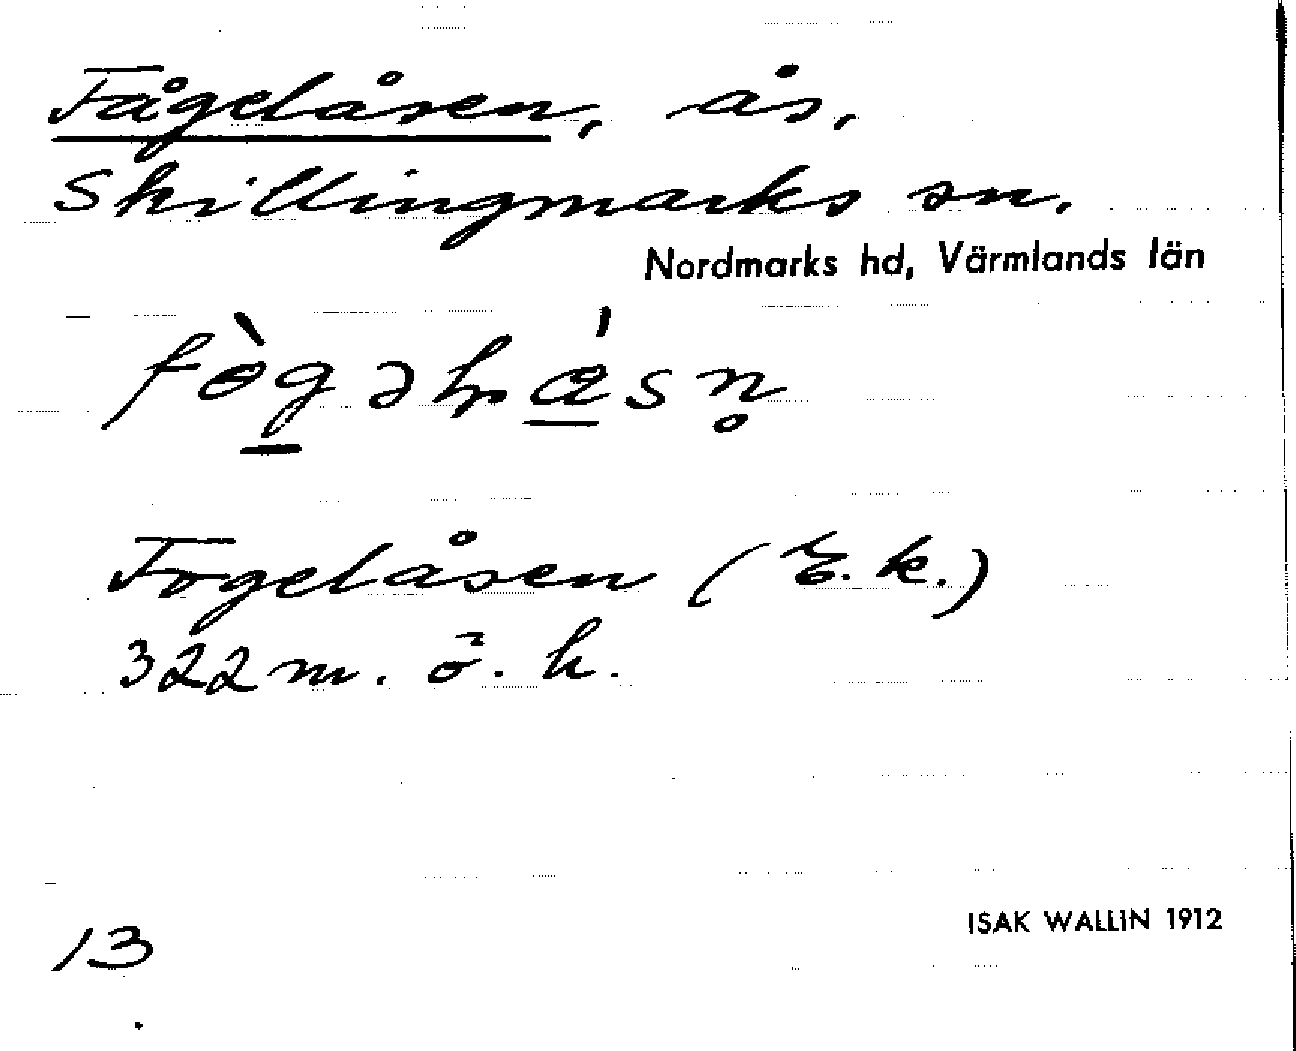 Fågelåsen, ås,
Skillingmarks sn.
Nordmarks hd, Värmlands län
Fogelåsen (E.k.)
322 m. ö. h.
ISAK WALLIN 1912
13